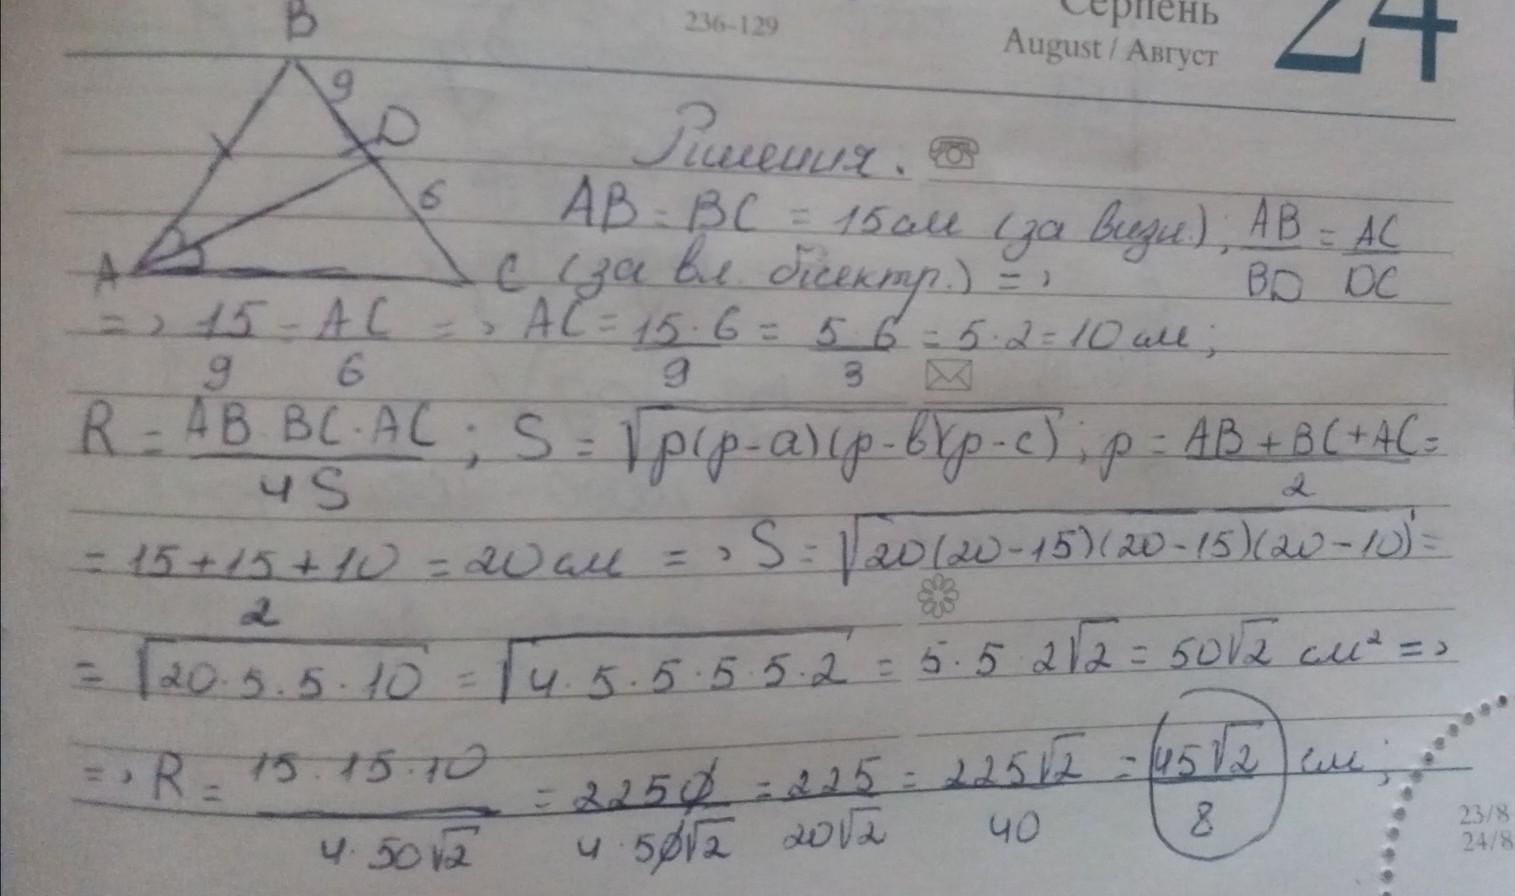 236-129
Серпень
August / Август
24
B
9
D
6
A
C
Рішення.
AB = BC = 15 см (за визн.); AB/BD = AC/DC
(за вл. бісектр.) =>
=> 15/9 = AC/6 => AC = 15·6/9 = 5·6/3 = 5·2 = 10 см;
R = AB·BC·AC/4S; S = √p(p-a)(p-b)(p-c); p = AB+BC+AC/2 =
= 15+15+10/2 = 20 см => S = √20(20-15)(20-15)(20-10) =
= √20·5·5·10 = √4·5·5·5·5·2 = 5·5·2√2 = 50√2 см² =>
=> R = 15·15·10/4·50√2 = 2250/4·50√2 = 225/20√2 = 225√2/40 = 45√2/8 см;
23/8
24/8